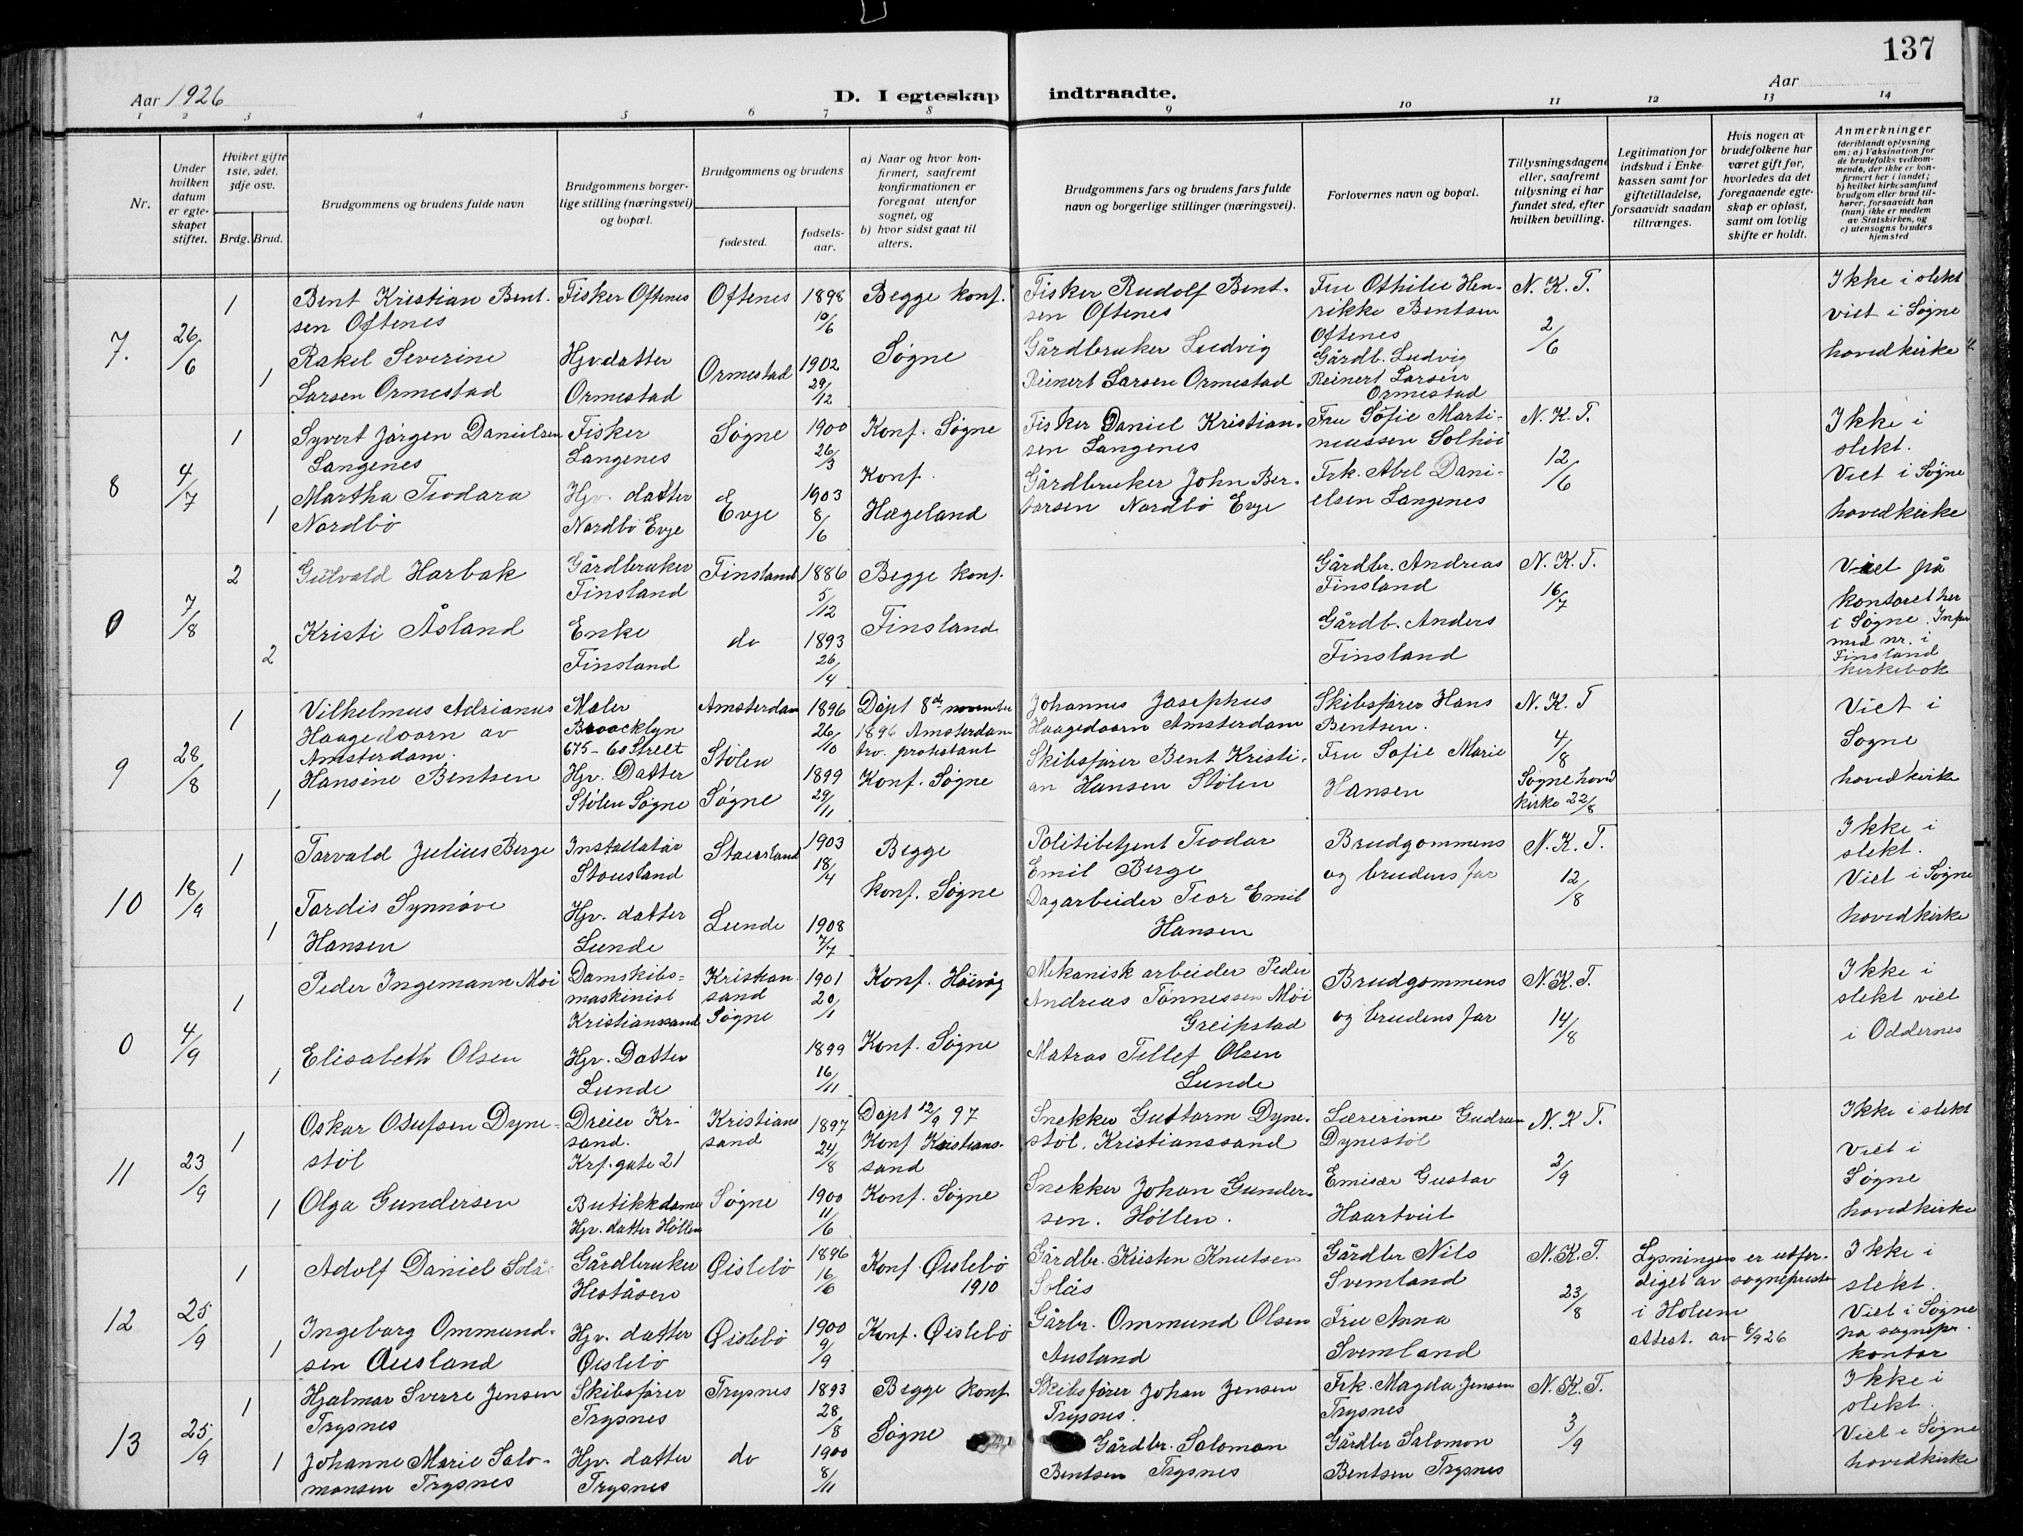 137
Aar 1926
D. I egteskap indtraadte.
Aar
1 2 3 4 5 6 7 8 9 10 11 12 13 14
Nr.
Under hvilken datum er egteskapet stiftet.
Hvilket gifte 1ste, 2det, 3dje osv.
Brdg. Brud.
Brudgommens og brudens fulde navn
Brudgommens borgerlige stilling (næringsvei) og bopæl.
Brudgommens og brudens
fødested.
fødselsaar.
a) Naar og hvor konfirmert, saafremt konfirmationen er foregaat utenfor sognet, og
b) hvor sidst gaat til alters.
Brudgommens fars og brudens fars fulde navn og borgerlige stillinger (næringsvei).
Forlovernes navn og bopæl.
Tillysningsdagene eller, saafremt tillysning ei har fundet sted, efter hvilken bevilling.
Legitimation for indskud i Enkekassen samt for giftetilladelse, forsaavidt saadan tiltrænges.
Hvis nogen av brudefolkene har været gift før, hvorledes da det foregaaende egteskap er opløst, samt om lovlig skifte er holdt.
Anmerkninger (deriblandt oplysning om: a) Vaksination for de brudefolks vedkommende, der ikke er konfirmert her i landet; b) hvilket kirkesamfund brudgom eller brud tilhører, forsaavidt han (hun) ikke er medlem av Statskirken, og c) utensogns bruders hjemsted
7. 26/6 1
Bent Kristian Bentsen Oftenes
Fisker Oftenes
Oftenes 1898 10/6
Begge konf. Søgne
Fisker Rudolf Bentsen Oftenes
Fru Othilie Henrikke Bentsen Oftenes
N. K. T. 2/6
Ikke i slekt viet i Søgne hovedkirke
1
Rakel Severine Larsen Ormestad
Hjv datter Ormestad
Ormestad 1902 29/12
Gårdbruker Ludvig Reinert Larsen Ormestad
Gårdb. Ludvig Reinert Larsen Ormestad
8 4/7 1
Syvert Jörgen Danielsen Langenes
Fisker Langenes
Søgne 1900 26/3
Konf. Søgne
Fisker Daniel Kristiansen Langenes
Fru Sofie Martinussen Solhöi
N. K. T. 12/6
Ikke i slekt. Viet i Søgne hovedkirke
1
Martha Teodora Nordbö
Hjv. datter Nordbö Evje
Evje 1903 8/6
Konf. Hægeland
Gårdbruker John Bertorsen Nordbö Evje
Frk. Abel Danielsen Langenes
0 7/8 2
Gutvald Harbak
Gårdbruker Finsland
Finsland 1886 5/12
Begge konf. Finsland
Gårdbr. Andreas Finsland
N. K. T. 16/7
Viet på kontoret her i Søgne. Inför med nr. i Finsland kirkebok
2
Kristi Åsland
Enke Finsland
do 1893 26/4
Gårdb. Anders Finsland
9 28/8 1
Vilhelmus Adrianus Haagedoorn av Amsterdam.
Maler Broocklyn 675-60 Street
Amsterdam 1896 26/10
Döpt 8de november 1896 Amsterdam tro. protestant
Johannes Josephus Haagedoorn Amsterdam
Skibsfører Hans Bentsen.
N. K. T 4/8
Søgne hovedkirke 22/8
Viet i Sogne hovedkirke
1
Hansine Bentsen
Hjv. Datter Stölen Søgne
Stölen Søgne 1899 29/11
Konf. Søgne
Skibsfører Bent Kristian Hansen Stölen
Fru Sofie Marie Hansen
10 18/9 1
Torvald Julius Berge
Installatör Stousland
Stousland 1903 18/4
Begge konf. Søgne
Politibetjent Teodor Emil Berge
Brudgommens og brudens far
N. K. T. 12/8
Ikke i slekt. Viet i Søgne hovedkirke
1
Tordis Synnöve Hansen
Hjv. datter Lunde
Lunde 1908 7/7
Dagarbeider Teor Emil Hansen
0 4/9 1
Peder Ingemann Moi
Damskibsmaskinist Kristianssand
Kristiansand 1901 20/1
Konf. Höivåg
Mekanisk arbeider Peder Andreas Tönnessen Möi Greipstad
Brudgommens og brudens far
N. K. T. 14/8
Ikke i slekt viet i Oddernes
1
Elisabeth Olsen
Hjv. Datter Lunde
Søgne 1899 16/11
Konf. Søgne
Matros Tellef Olsen Lunde
11 23/9 1
Oskar Olufsen Dynestöl
Dreier Kr-sand. Krf. gate 21
Kristianssand 1897 24/8
Döpt 12/9 97 Konf Kristianssand
Snekker Guttorm Dynestöl. Kristianssand
Lærerinne Gudrun Dynestöl
N. K T. 2/9
Ikke i slekt Viet i Søgne hovedkirke
1
Olga Gundersen
Butikkdame Hjv. datter Höllen
Søgne 1900 11/6
Konf. Søgne
Snekker Johan Gundersen. Höllen.
Emisær Gustav Haartveit
12 25/9 1
Adolf Daniel Solås
Gårdbruker Heståsen
Øislebö 1896 16/6
Konf. Øislebö 1910
Gårdbr. Kristen Knutsen Solås
Gårdbr Nils Svemland
N. K. T. 23/8
Lysningen er utferdiget av sogneprest i Holum attest. av 6/9 26
Ikke i slekt. Viet i Søgne på sognepr. kontor
1
Ingeborg Ommundsen Ausland
Hjv. datter Øislebö
Øislebö 1900 9/9
Konf. Øislebö
Gårbr. Ommund Olsen Ausland
Fru Anna Svemland
13 25/9 1
Hjalmar Sverre Jensen Trysnes
Skibsfører Trysnes
Trysnes 1893 28/8
Begge konf Søgne
Skibsfører Johan Jensen Trysnes.
Frk. Magda Jensen Trysnes
N. K. T. 3/9
Ikke i slekt. Viet i Søgne hovedkirke
1
Johanne Marie Salomonsen Trysnes
Hjv. datter Trysnes
do 1900 8/11
Gårdbr. Salomon Bentsen Trysnes
Gårdbr Salomon Bentsen Trysnes